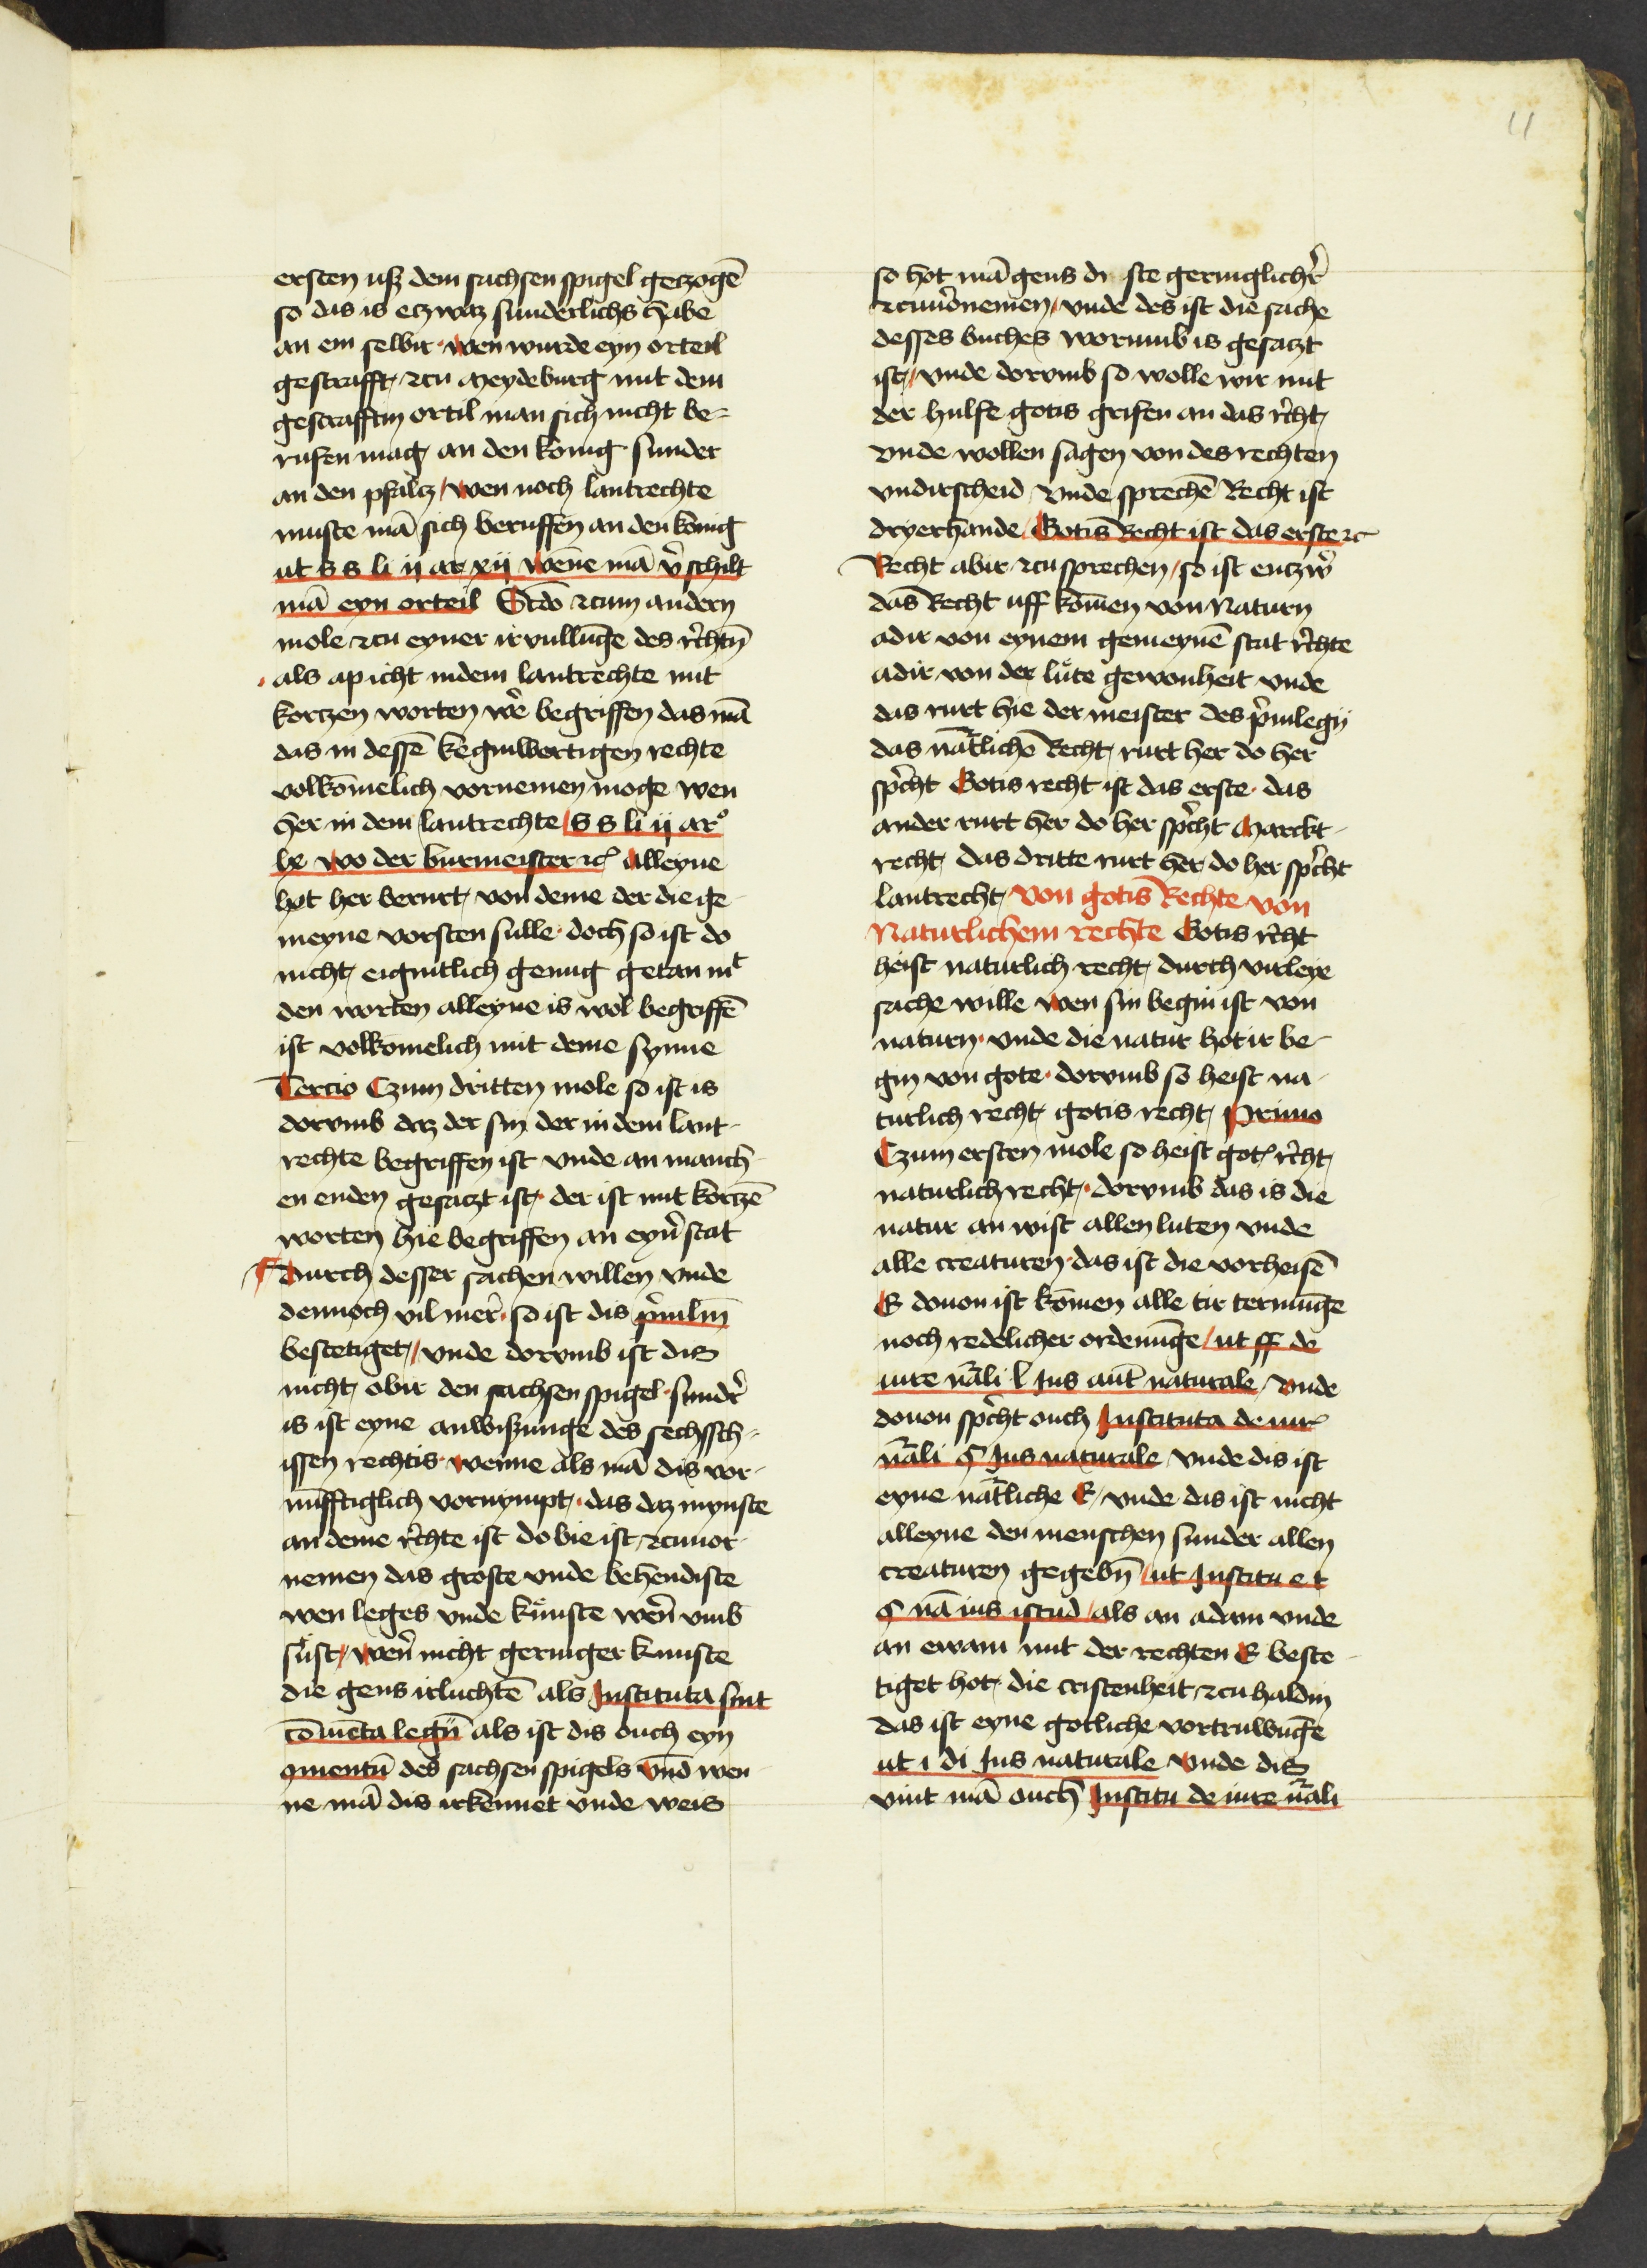 11
ersten uß dem sachsen spigel geczogē
so das is eczwaz sunderlichs habe
an em selbir· wen wurde eyn orteil
gestrafft, czu Meydeburg mit dem
gestrafftin ortil man sich nicht be-
rufen mag, an den konig· sunder
an den pfalcz / wen noch lantrechte
muste mā sich beruffen an den konig
ut s s li ij ar xij wēne mā v̓schilt
mā eyn orteil Scdo czum andern
mole czu eyner irvullūge des r̓chtn̄
als ap icht indem lantrechte mit
kortzen worten we̓ begriffen das mā
das in dessē keginwortigen rechte
volkōmelich vornemen moge wen
her in dem lantrechte / s s li ij ar°
lx wo der burmeister ꝛc̓ alleyne
hot her berurt, von deme der die ge-
meyne vorsten sulle· doch so ist do
nicht, eigintlich genug getan mᵗ
den worten alleyne is wol begriffē
ist volkomelich mit deme synne
Tercio Czum dritten mole so ist is
dorvmb daz der sin der in dem lant-
rechte begriffen ist vnde an manch-
en enden gesaczt ist,· der ist mit kortzē
worten hie begriffen an eyn̓ stat
Durch desser sachen willen vnde
dennoch vil mer̓· so ist dis p̓uilm̄
bestetiget, / vnde dorvmb ist dis
nicht, obir den sachsen spigel· sundr̓
is ist eyne anwißunge des sechssch-
issen rechtis· wenne als mā dis vor-
nūfftiglich vornympt,· das daz mynste
an deme r̓chte ist do bie ist, czuvor-
nemen das groste vnde behendiste
wen leges vnde kůnste wen̓ vmb
sůst / wen̓ nicht geringer kunste
die gens irluchtē als Instituta sint
cōmēta legū als ist dis ouch eyn
ꝯmentū des sachsen spigels vnd wen-
ne mā dis irkennet vnde weis
so hot mā gens di ste geringlichr̓
czuuo̓nemen / vnde des ist die sache
desses buches worumb is gesaczt
ist, / vnde dorvmb so wolle wir mit
der hulfe gotis grifen an das r̓cht,
vnde wollen sagen von des rechten
vndirscheid vnde sprechē Recht ist
dryerhande / Gotis Recht ist das erste ꝛc
Recht abir czu sprechen / so ist enczw̓
das Recht uff komen von Naturn
adir von eynem gemeynē stat r̓chte
adir von der lůte gewonheit vnde
das rurt hie der meister des p̓uilegij
das nātlich Recht, rurt her do her
sp̓cht Gotis recht ist das erste· das
ander rurt her do her sp̓cht Marckt-
recht, das dritte rurt her do her sp̓cht
lantrecht, von gotis Rechte von
Naturlichem rechte Gotis r̓cht
heist naturlich recht, durch virleye
sache wille wen sin begin ist von
naturn· vnde die natur hot ir be-
gin von gote· dorvmb so heist na-
turlich recht, gotis recht, Primo
Czum ersten mole so heist got̓ r̓cht,
naturlich recht,· dorvmb das is die
natur an wist allen luten vnde
alle creaturen· das ist die vorheisē
E douon ist komen alle tir termūge
noch redelicher ordenūge / ut ff de
iure nāli l Ius aut̄ naturale / vnde
douon sp̓cht ouch Instituta de iur̓
nāli § Ius naturale vnde dis ist
eyne nātliche E, vnde das ist nicht
alleyne den menschen sunder allen
creaturen gegebn̄ / ut Institu e t
§ nā ius istud / als an adam vnde
an ewam mit der rechten E beste-
tiget hot, die cristenheit, czu haldin
das ist eyne gotliche vortruwūge
ut i di Ius naturale vnde dis
vint mā ouch Institu de iure nāli